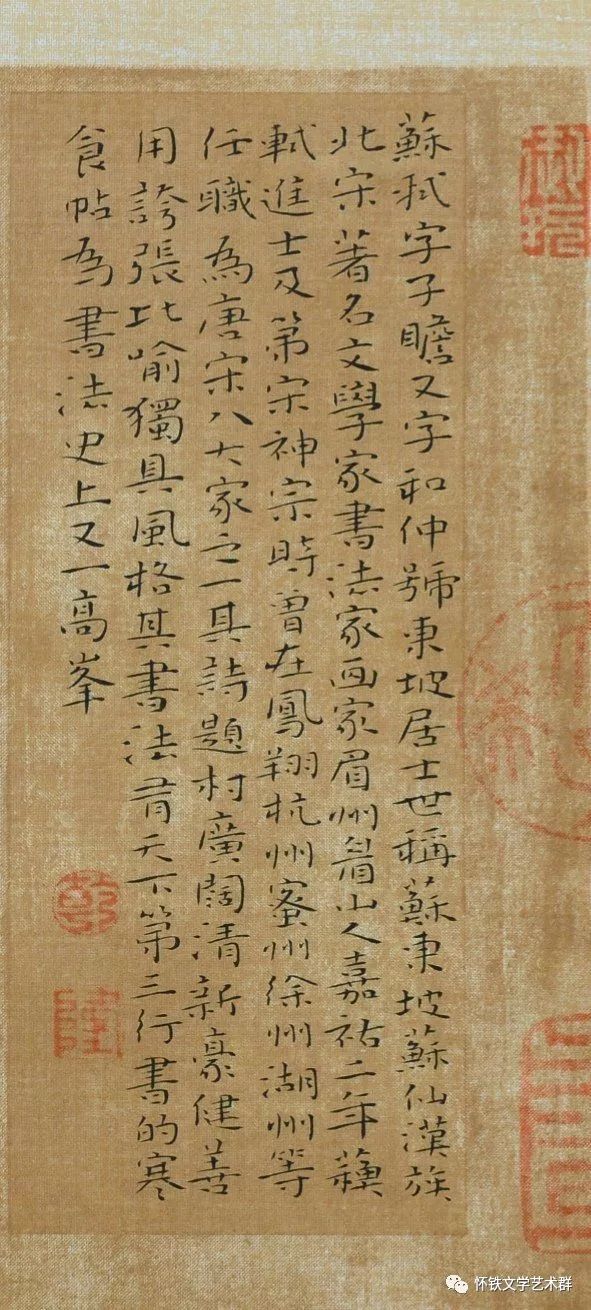 蘇軾字子瞻又字和仲號東坡居士世稱蘇東坡蘇仙漢族
北宋著名文學家書法家画家眉州眉山人嘉祐二年蘇
軾進士及第宋神宗時曽在鳳翔杭州蜜州徐州湖州等
任職為唐宋八大家之一其詩題材廣闊清新豪健善
用誇張比喻獨具風格其書法有天下第三行書的寒
食帖為書法史上又一高峯
乾
隆
怀铁文学艺术群